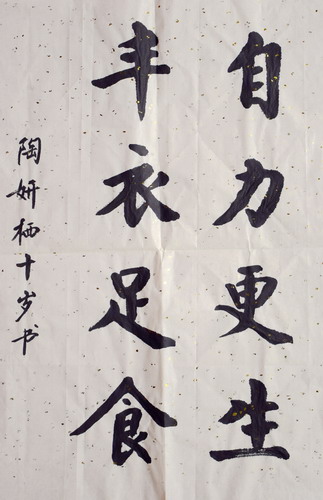 自力更生
丰衣足食
陶妍栖十岁书